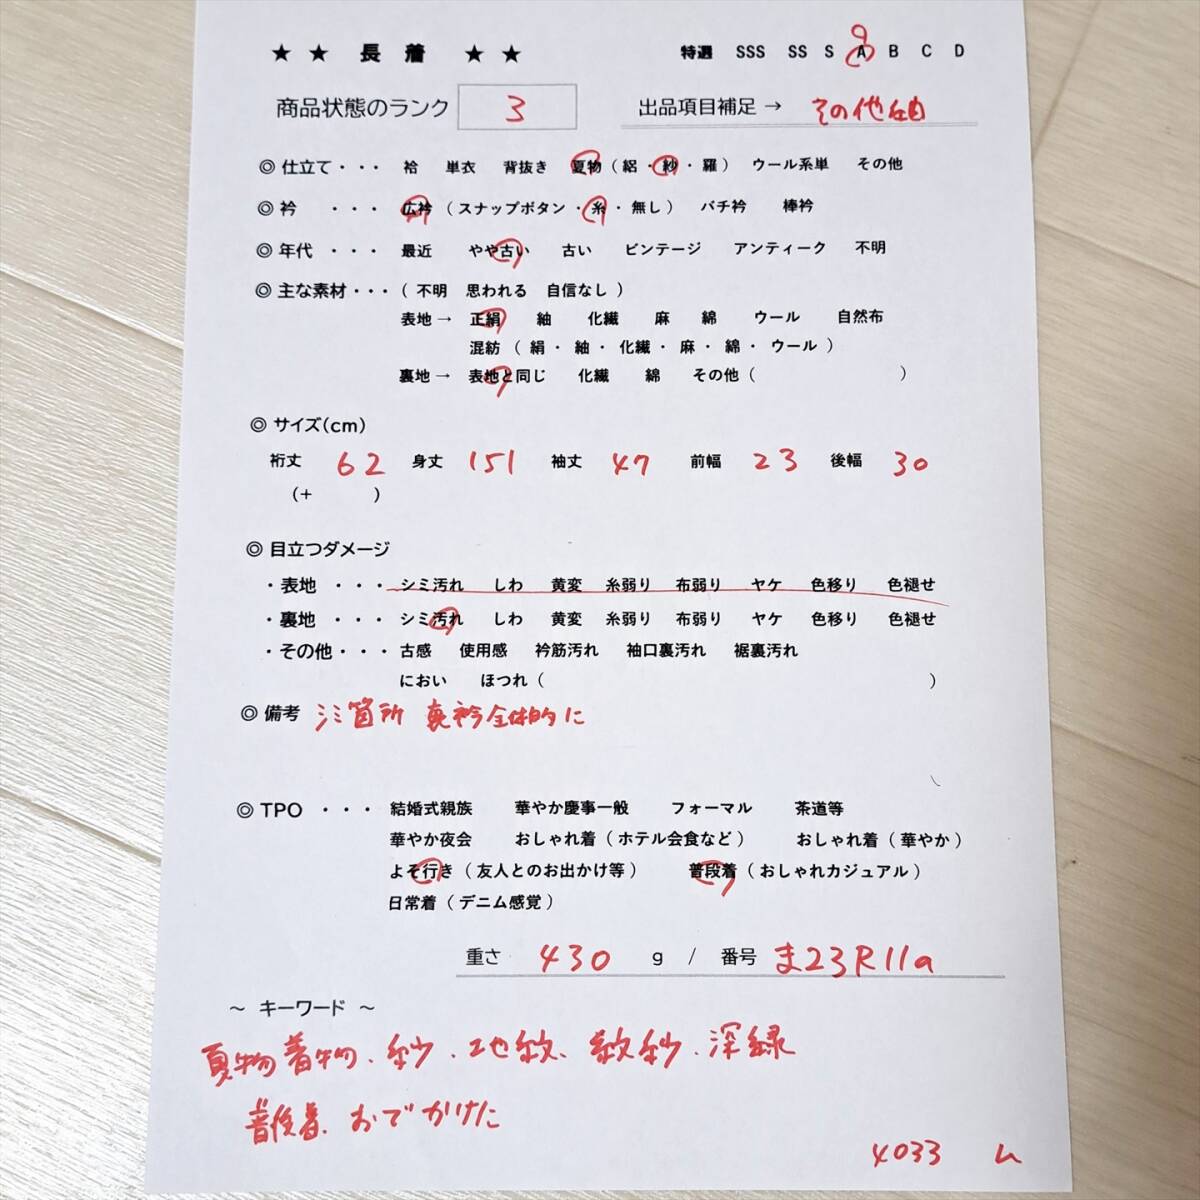 ★ ★ 長 着 ★ ★ 特選 SSS SS S A B C D
商品状態のランク 3 出品項目補足 → その他
◎ 仕立て・・・ 袷 単衣 背抜き 夏物（絽・紗・羅） ウール系単 その他
◎ 衿 ・・・ 広衿（スナップボタン・糸・無し） バチ衿 棒衿
◎ 年代 ・・・ 最近 やや古い 古い ビンテージ アンティーク 不明
◎ 主な素材・・・（ 不明 思われる 自信なし ）
表地 → 正絹 紬 化繊 麻 綿 ウール 自然布
混紡（ 絹・紬・化繊・麻・綿・ウール ）
裏地 → 表地と同じ 化繊 綿 その他（ ）
◎ サイズ(cm)
裄丈 62 身丈 151 袖丈 47 前幅 23 後幅 30
(+ )
◎ 目立つダメージ
・表地 ・・・ シミ汚れ しわ 黄変 糸弱り 布弱り ヤケ 色移り 色褪せ
・裏地 ・・・ シミ汚れ しわ 黄変 糸弱り 布弱り ヤケ 色移り 色褪せ
・その他・・・ 古感 使用感 衿筋汚れ 袖口裏汚れ 裾裏汚れ
におい ほつれ（ ）
◎ 備考 シミ箇所 裏衿全体的に
◎ TPO ・・・ 結婚式親族 華やか慶事一般 フォーマル 茶道等
華やか夜会 おしゃれ着（ホテル会食など） おしゃれ着（華やか）
よそ行き（友人とのお出かけ等） 普段着（おしゃれカジュアル）
日常着（デニム感覚）
重さ 430 g / 番号 ま23R11a
～ キーワード ～
夏物着物、紗、地紋、紋紗、深緑
普段着、おでかけに
4033 ム